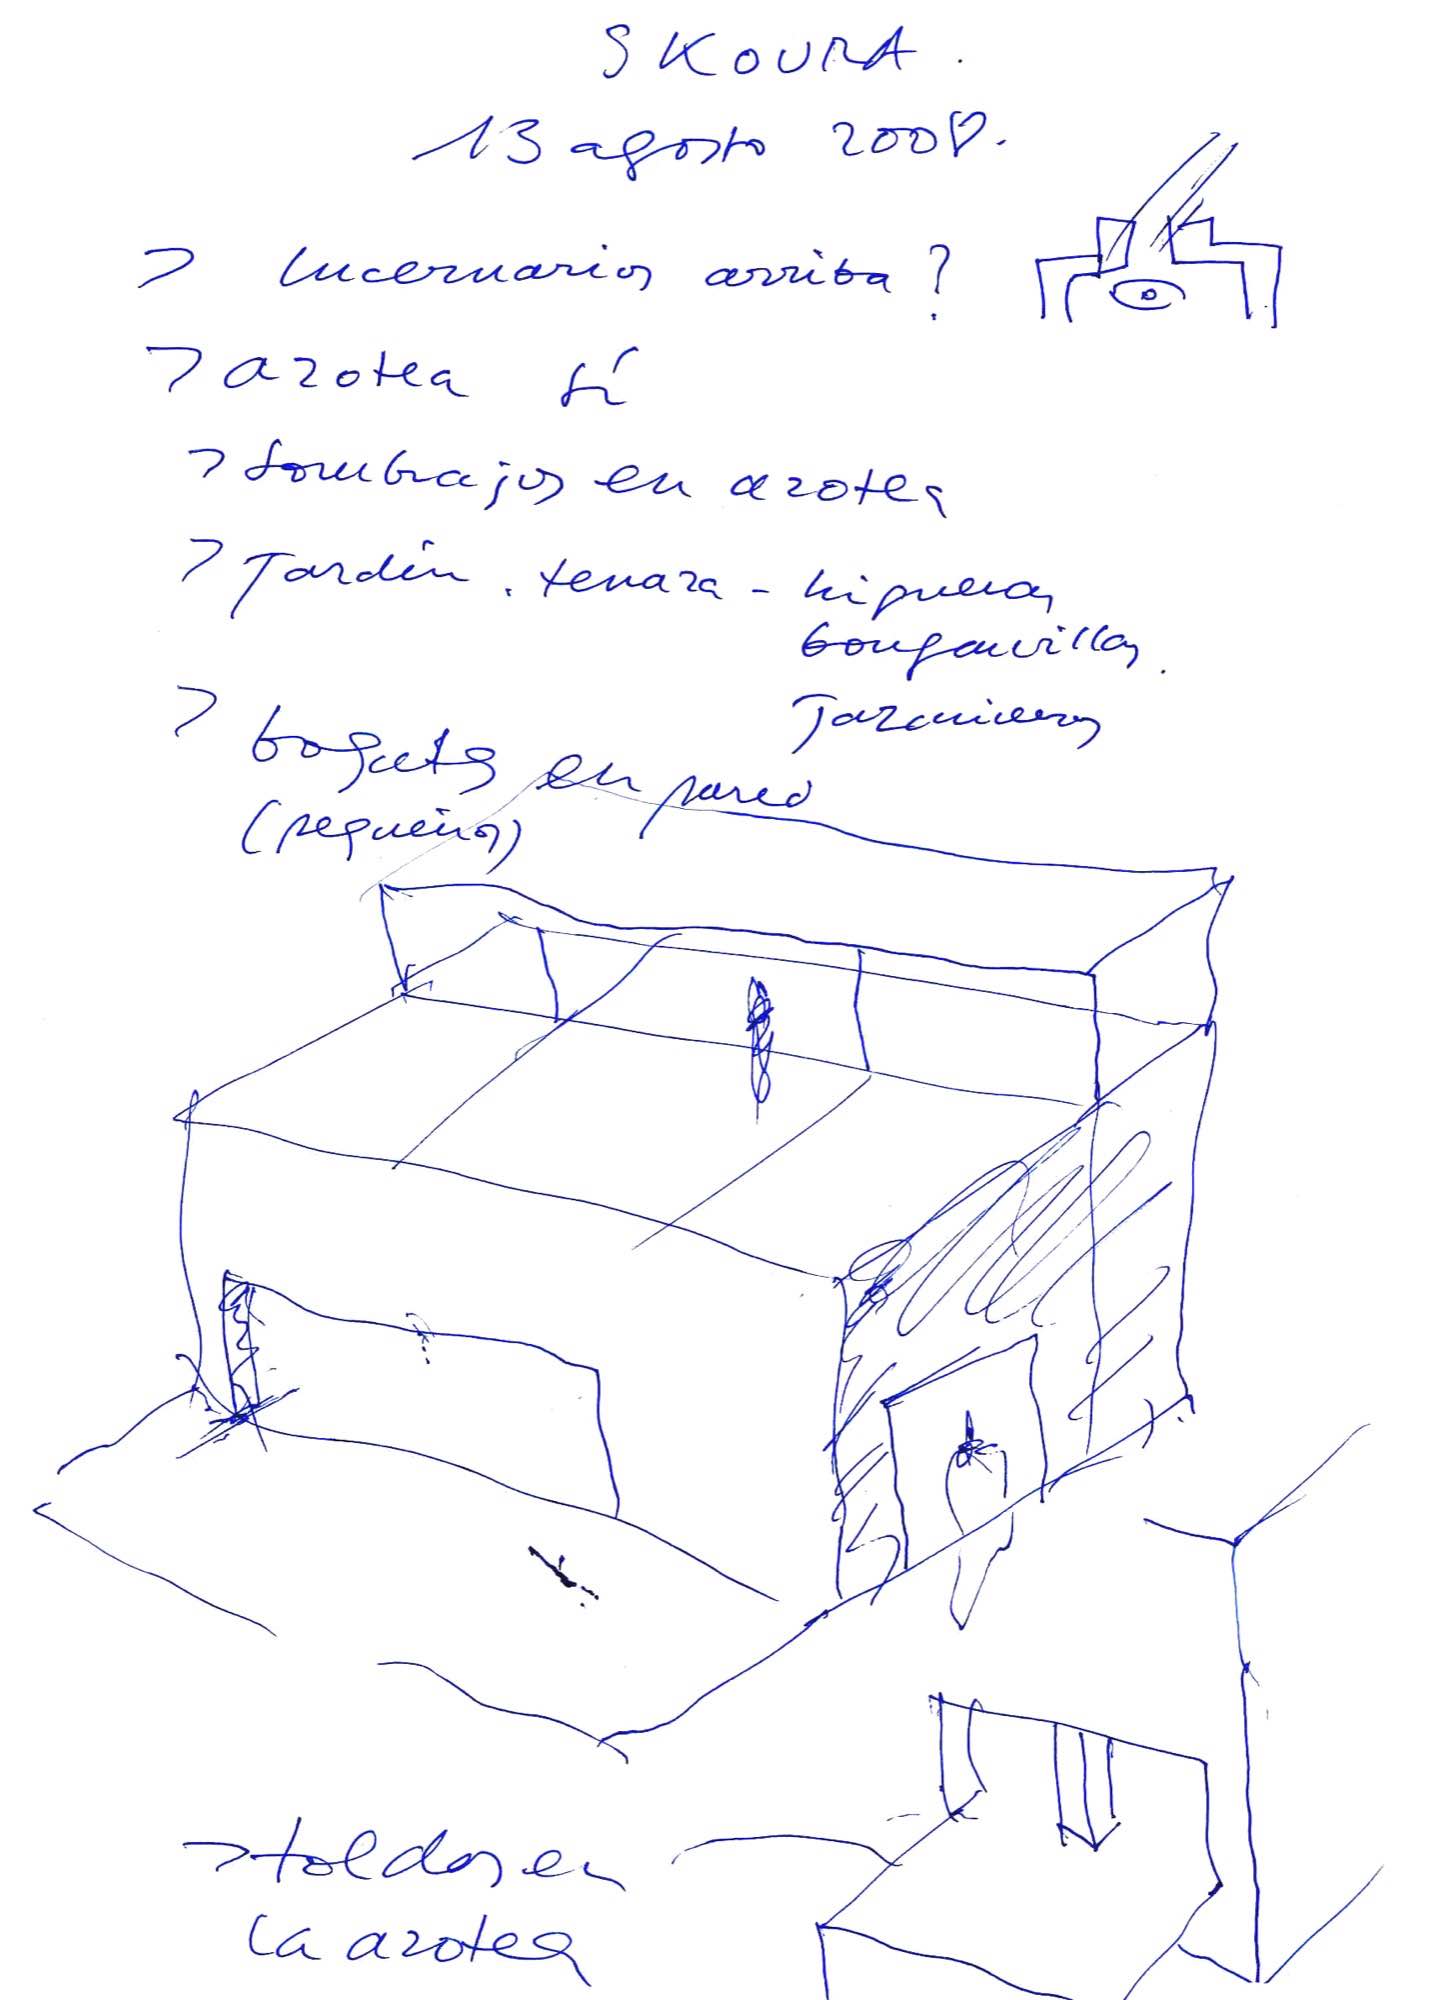 SKOURA.
13 agosto 2008.
> lucernarios arriba?
> azotea sí
> sombrajos en azotea
> Jardín. terraza - higueras
bougainvillas.
Jazmineros
> en pared
(pequeños)
> toldos en
la azotea